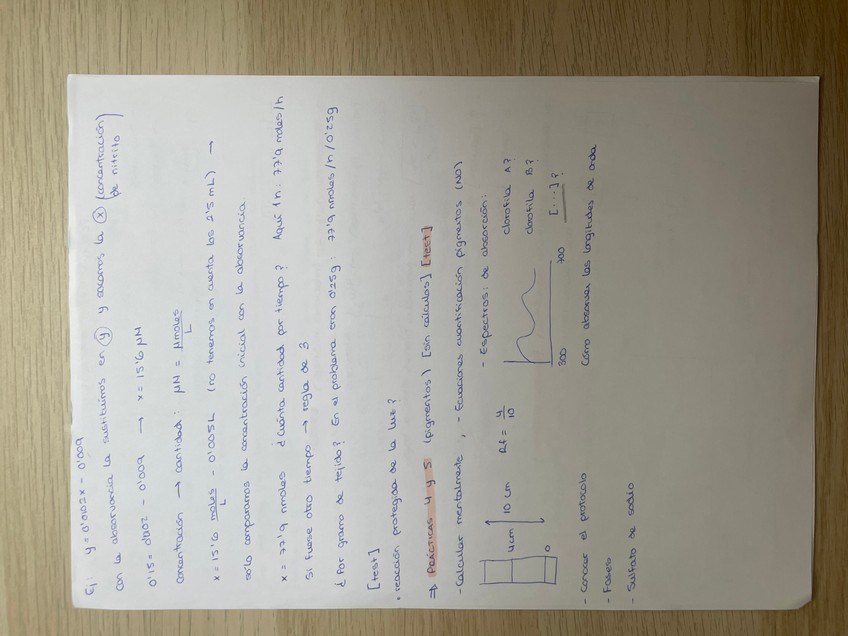 Ej: y = 0'0102x - 0'009
con la absorvancia la sustituimos en y y sacamos la x (concentración de nitrito)
0'15 = 0'0102 - 0'009 → x = 15'6 µM
concentración → cantidad: µM = µmoles/L
x = 15'6 moles/L · 0'005L (no tenemos en cuenta los 2'5 mL) →
sólo comparamos la concentración inicial con la absorvancia
x = 77'9 nmoles ¿Cuánta cantidad por tiempo? Aquí 1h: 77'9 nmoles/h
Si fuese otro tiempo → regla de 3
¿Por gramo de tejido? En el problema eran 0'25g: 77'9 nmoles/h/0'25g
[test]
• reacción protegida de la luz?
⇒ PRÁCTICAS 4 y 5: (pigmentos) [sin cálculos] [test]
- Calcular mentalmente, - Ecuaciones cuantificación pigmentos (NO)
4cm 10 cm Rf = 4/10
0
- Espectros: de absorción:
clorofila A?
clorofila B?
[...]?
500 700
Cómo absorven las longitudes de onda
- Conocer el protocolo
- Fases
- Sulfato de sodio